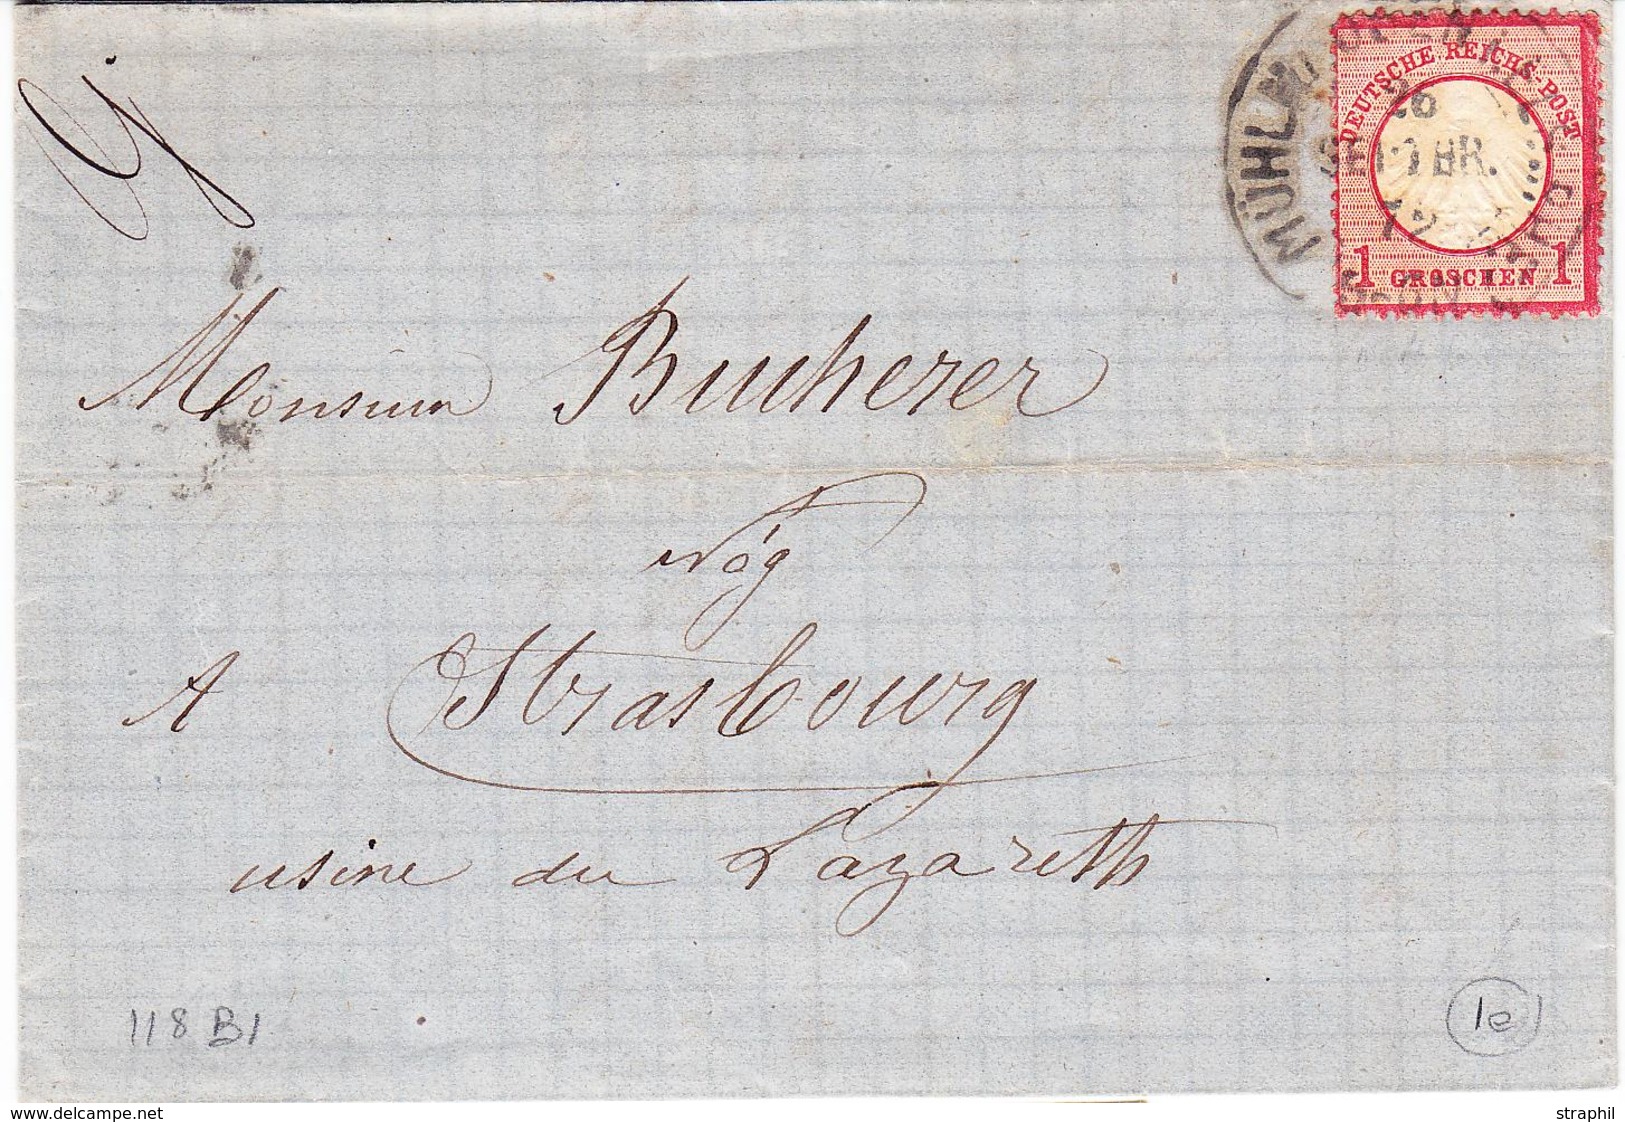 DEUTSCHE REICHS-POST
SEPTBR.
72
1 GROSCHEN 1
Monsieur Bucherer
Nég
A Strasbourg
usine du Lazareth
118 B1
1e
www.delcampe.net
straphil